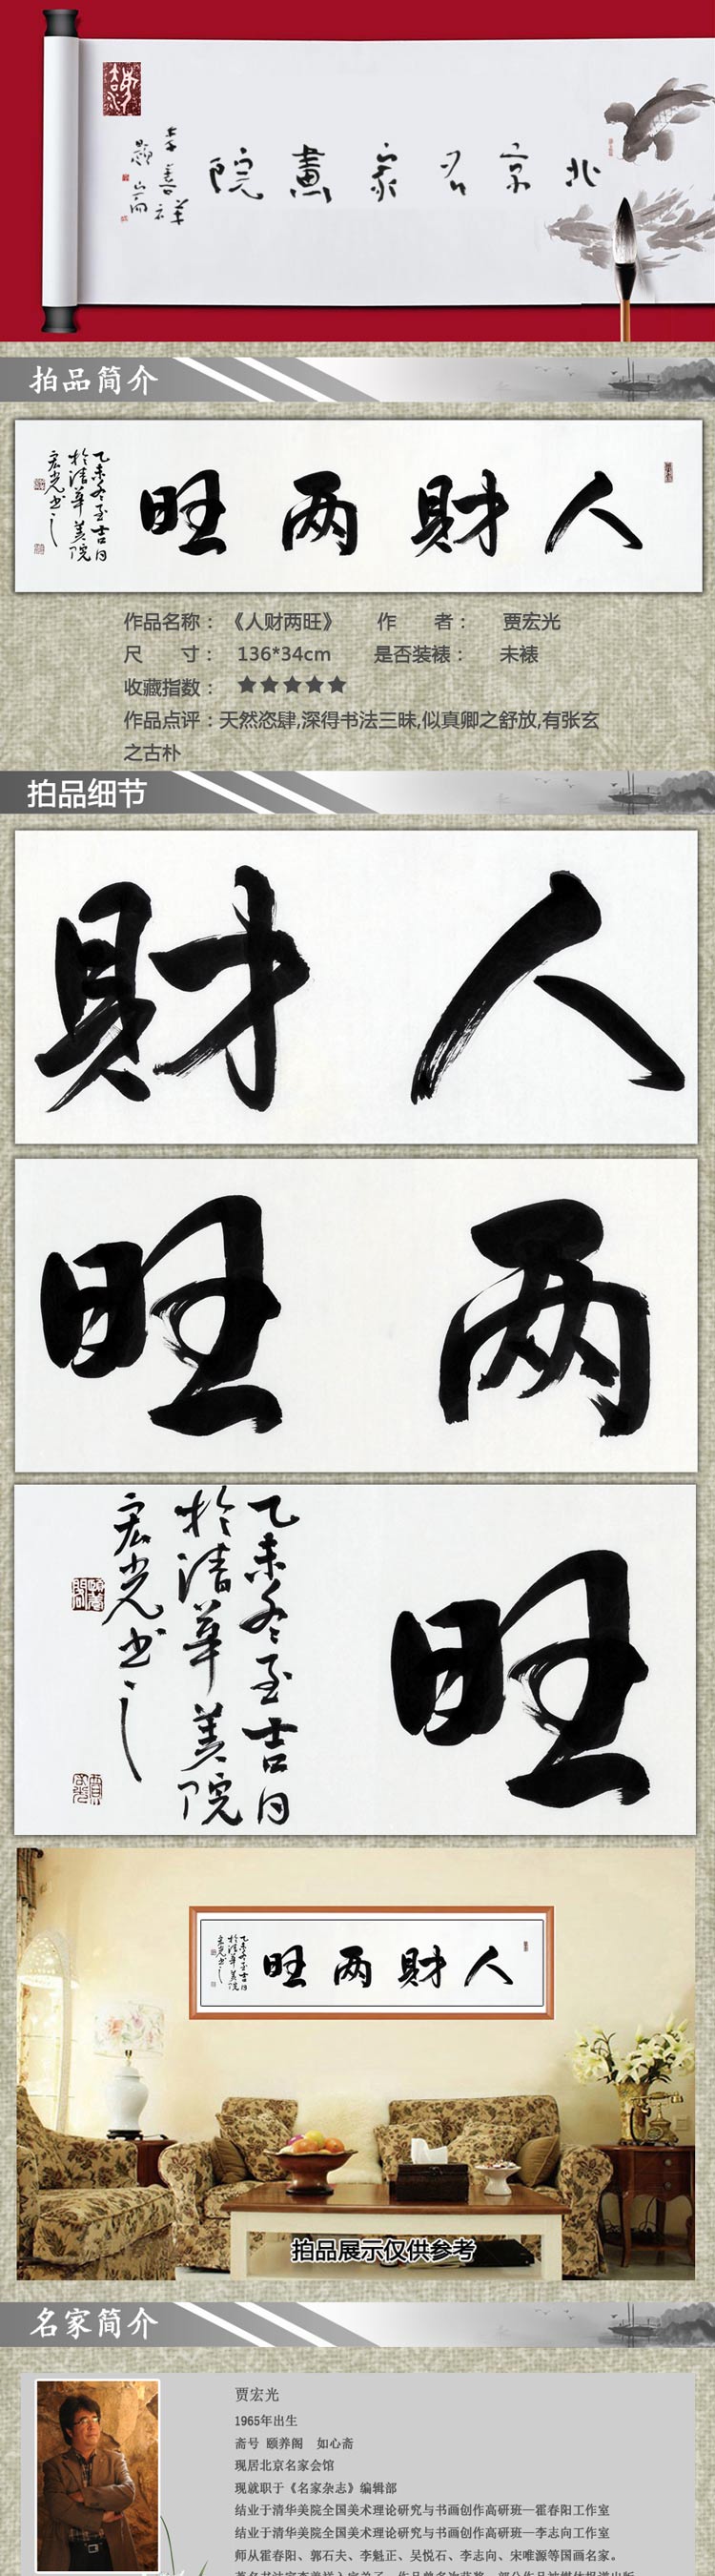 北京名家畫院
李善祥
題
拍品简介
人財两旺
乙未冬至吉日
於清華美院
宏光书之
作品名称：《人财两旺》 作 者： 贾宏光
尺 寸： 136*34cm 是否装裱： 未裱
收藏指数： ★★★★★
作品点评：天然恣肆,深得书法三昧,似真卿之舒放,有张玄
之古朴
拍品细节
人財
两旺
旺
乙未冬至吉日
於清華美院
宏光书之
人財两旺
乙未冬至吉日
於清華美院
宏光书之
拍品展示仅供参考
名家简介
贾宏光
1965年出生
斋号 颐养阁 如心斋
现居北京名家会馆
现就职于《名家杂志》编辑部
结业于清华美院全国美术理论研究与书画创作高研班—霍春阳工作室
结业于清华美院全国美术理论研究与书画创作高研班—李志向工作室
师从霍春阳、郭石夫、李魁正、吴悦石、李志向、宋唯源等国画名家。